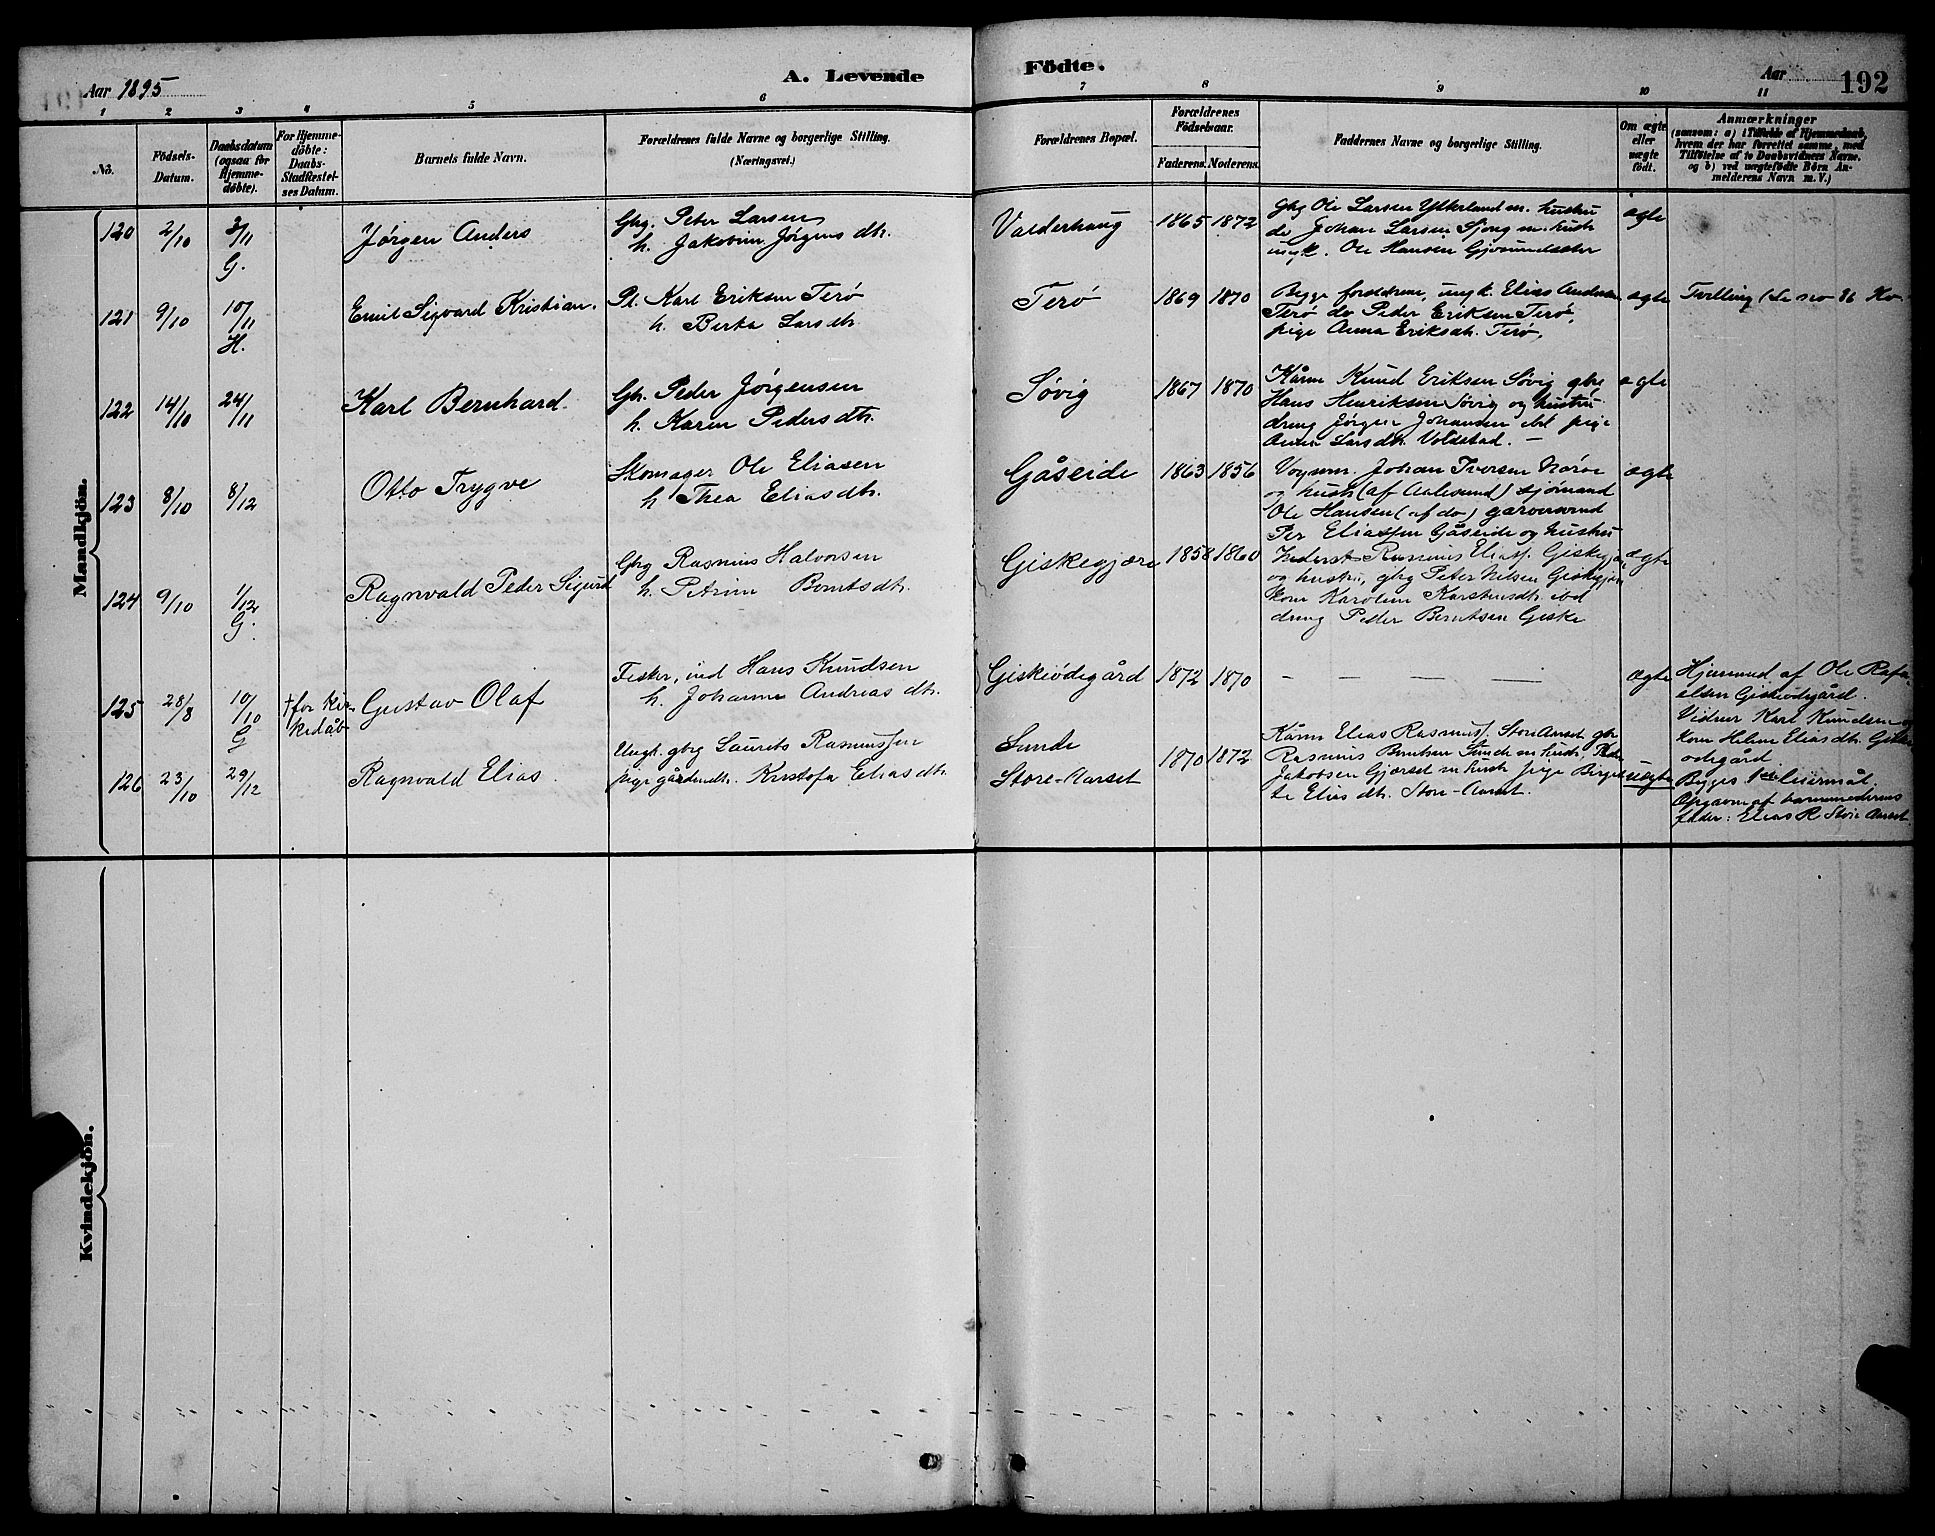 Aar 1895
A. Levende
Födte.
Aar
192
1 2 3 4 5 6 7 8 9 10 11
No.
Födsels-
Datum.
Daabsdatum
(ogsaa for
Hjemme-
döbte).
For Hjemme-
döbte:
Daabs-
Stadfæstel-
ses Datum.
Barnets fulde Navn.
Forældrenes fulde Navne og borgerlige Stilling.
(Næringsvei.)
Forældrenes Bopæl.
Forældrenes
Födselsaar.
Faderens. Moderens.
Faddernes Navne og borgerlige Stilling.
Om ægte
eller
uægte
födt.
Anmærkninger
(saasom: a) i Tilfælde af Hjemmedaab,
hvem der har forrettet samme, med
Tilföielse af to Daabsvidners Navne,
og b) ved uægtefödte Börn An-
melderens Navn m. V.)
Mandkjön.
120
2/10
3/11
G.
Jørgen Anders
Gbg. Peter Larsen
h. Jakobine Jørgens dtr.
Valderhaug
1865 1872
gbg Ole Larsen Ytterland m. hustru
do Johan Larsen Sjong m. hustr
ungk. Ole Hansen Gjøsundsæter
ægte
121
9/10
10/11
H.
Emil Sigvard Kristian.
Pl. Karl Eriksen Terø
h. Berta Larsdtr.
Terø
1869 1870
Begge forældrene, ungk. Elias Andersen
Terø do Peder Eriksen Terø,
pige Anna Eriksdtr. Terø.
ægte
Tvilling (se no 86 Kv.
122
14/10
24/11
Karl Bernhard.
Gbr. Peder Jørgensen
h. Karen Peders dtr.
Søvig
1867 1870
Kårm Knud Eriksen Søvig gbr
Hans Henriksen Søvig og hustru
dreng Jørgen Johansen ibd pige
Anna Larsdtr. Voldstad. —
ægte
123
8/10
8/12
Otto Trygve
Skomager Ole Eliasen
h. Thea Eliasdtr.
Gåseide
1863 1856
Vognm. Johan Iversen Nørve
og hustr (af Aalesund) sjømand
Ole Hansen (af do) garversvend
Per Eliassen Gåseide og hustru
ægte
124
9/10
1/12
G.
Ragnvald Peder Sigurd
Gbg Rasmus Halvorsen
h. Petrine Berntsdtr.
Giskegjære
1858 1860
Inderst Rasmus Eliass. Giskegjær
og hustru, gbg Peter Nilsen Giskegjær
kone Karoline Karstensdtr. ibd
dreng Peder Berntsen Giske
ægte
125
28/8
10/10
G
† før kir-
kedåb
Gustav Olaf
Fisker, ind Hans Knudsen
h. Johanne Andreas dtr.
Giskeødegård
1872 1870
— — — —
ægte
Hjemmd af Ole Rafa-
elsen Giskeødegård.
Vidner Karl Knudsen og
kone Helene Eliasdtr. Giske
ødegård
126
23/10
29/12
Ragnvald Elias.
Ungk. gbrg Laurits Rasmussen
pige gårdmdtr. Kristofa Eliasdtr.
Sunde
Store-Aarset
1870 1872
Kårm Elias Rasmuss. Store Aarset gbr
Rasmus Berntsen Sunde m hustr, Peder
Jakobsen Gjærset m hustr pige Berget-
te Elias dtr. Store-Aarset.
uægte
Begges 1ste leiermål.
Opgavm af barnemoderens
fader: Elias R Store Aarset.
Kvindekjön.